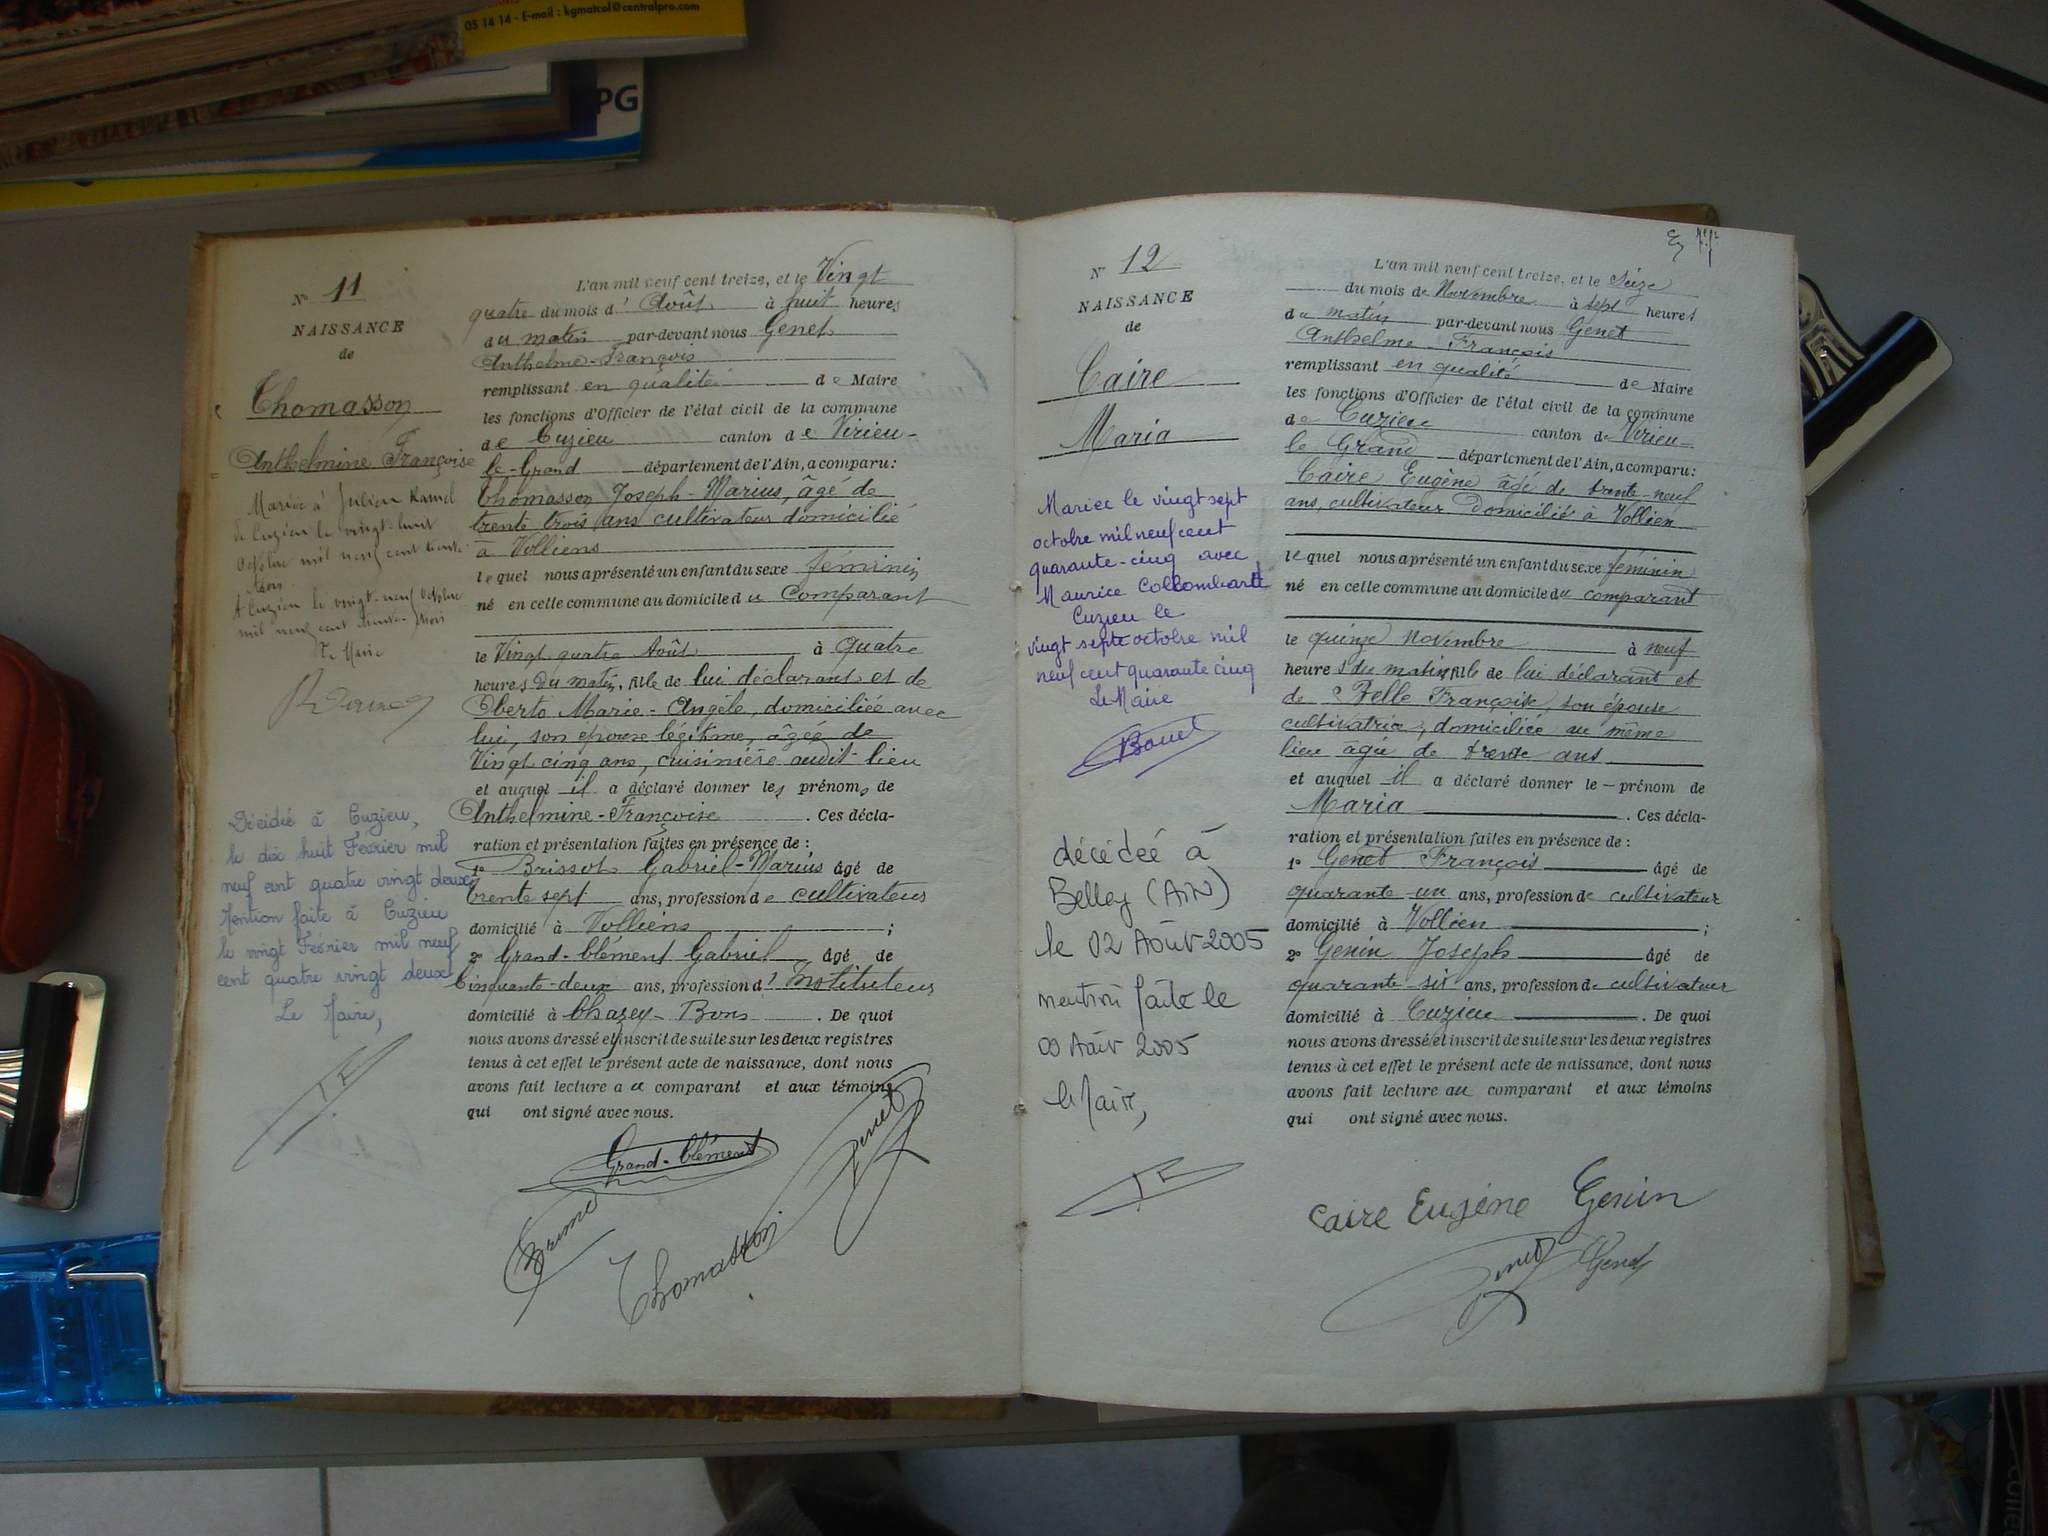 05 14 14 - E-mail : kgmatcol@centralpro.com
PG
N° 11
NAISSANCE
de
Thomasson
Anthelmine Françoise
Mariée à Julien
de Cuzieu le vingt-huit
Octobre mil neuf cent trente-
trois
A Cuzieu le vingt-neuf Octobre
mil neuf cent trente-trois
Le Maire
Décédée à Cuzieu,
le dix huit Février mil
neuf cent quatre vingt deux
Mention faite à Cuzieu
le vingt Février mil neuf
cent quatre vingt deux
Le Maire,
L'an mil neuf cent treize, et le Vingt
quatre du mois d' Août à huit heures
du matin par-devant nous Genet
Anthelme-François
remplissant en qualité de Maire
les fonctions d'Officier de l'état civil de la commune
de Cuzieu canton de Virieu-
le-Grand département de l'Ain, a comparu:
Thomasson Joseph-Marius, âgé de
trente trois ans cultivateur domicilié
à Volliens
lequel nous a présenté un enfant du sexe féminin
né en cette commune au domicile du Comparant
le Vingt quatre Août à quatre
heures du matin, fille de lui déclarant et de
Oberto Marie-Angèle, domiciliée avec
lui, son épouse légitime, âgée de
Vingt cinq ans, cuisinière audit lieu
et auquel il a déclaré donner les prénoms de
Anthelmine-Françoise. Ces décla-
ration et présentation faites en présence de :
1° Brissot Gabriel-Marius âgé de
trente sept ans, profession de cultivateur
domicilié à Volliens ;
2° Grand-Clément Gabriel âgé de
Cinquante-deux ans, profession d' Instituteur
domicilié à Chazey-Bons. De quoi
nous avons dressé et inscrit de suite sur les deux registres
tenus à cet effet le présent acte de naissance, dont nous
avons fait lecture au comparant et aux témoins
qui ont signé avec nous.
Grand-Clément
Thomasson
Genet
N° 12
NAISSANCE
de
Caire
Maria
Mariée le vingt sept
octobre mil neuf cent
quarante-cinq avec
Maurice Collombart
Cuzieu le
vingt sept octobre mil
neuf cent quarante cinq
Le Maire
Bouet
décédée à
Belley (AIN)
le 02 Août 2005
mention faite le
Août 2005
le Maire,
L'an mil neuf cent treize, et le Seize
du mois de Novembre à sept heures
du matin par-devant nous Genet
Anthelme François
remplissant en qualité de Maire
les fonctions d'Officier de l'état civil de la commune
de Cuzieu canton de Virieu-
le Grand département de l'Ain, a comparu:
Caire Eugène âgé de trente-neuf
ans, cultivateur domicilié à Vollien
lequel nous a présenté un enfant du sexe féminin
né en cette commune au domicile du comparant
le quinze novembre à neuf
heures du matin, fille de lui déclarant et
de Belle Françoise, son épouse
cultivatrice, domiciliée au même
lieu âgée de trente ans
et auquel il a déclaré donner le prénom de
Maria. Ces décla-
ration et présentation faites en présence de :
1° Genet François âgé de
quarante un ans, profession de cultivateur
domicilié à Vollien ;
2° Genin Joseph âgé de
quarante-six ans, profession de cultivateur
domicilié à Cuzieu. De quoi
nous avons dressé et inscrit de suite sur les deux registres
tenus à cet effet le présent acte de naissance, dont nous
avons fait lecture au comparant et aux témoins
qui ont signé avec nous.
Caire Eugène Genin
Genet Genet